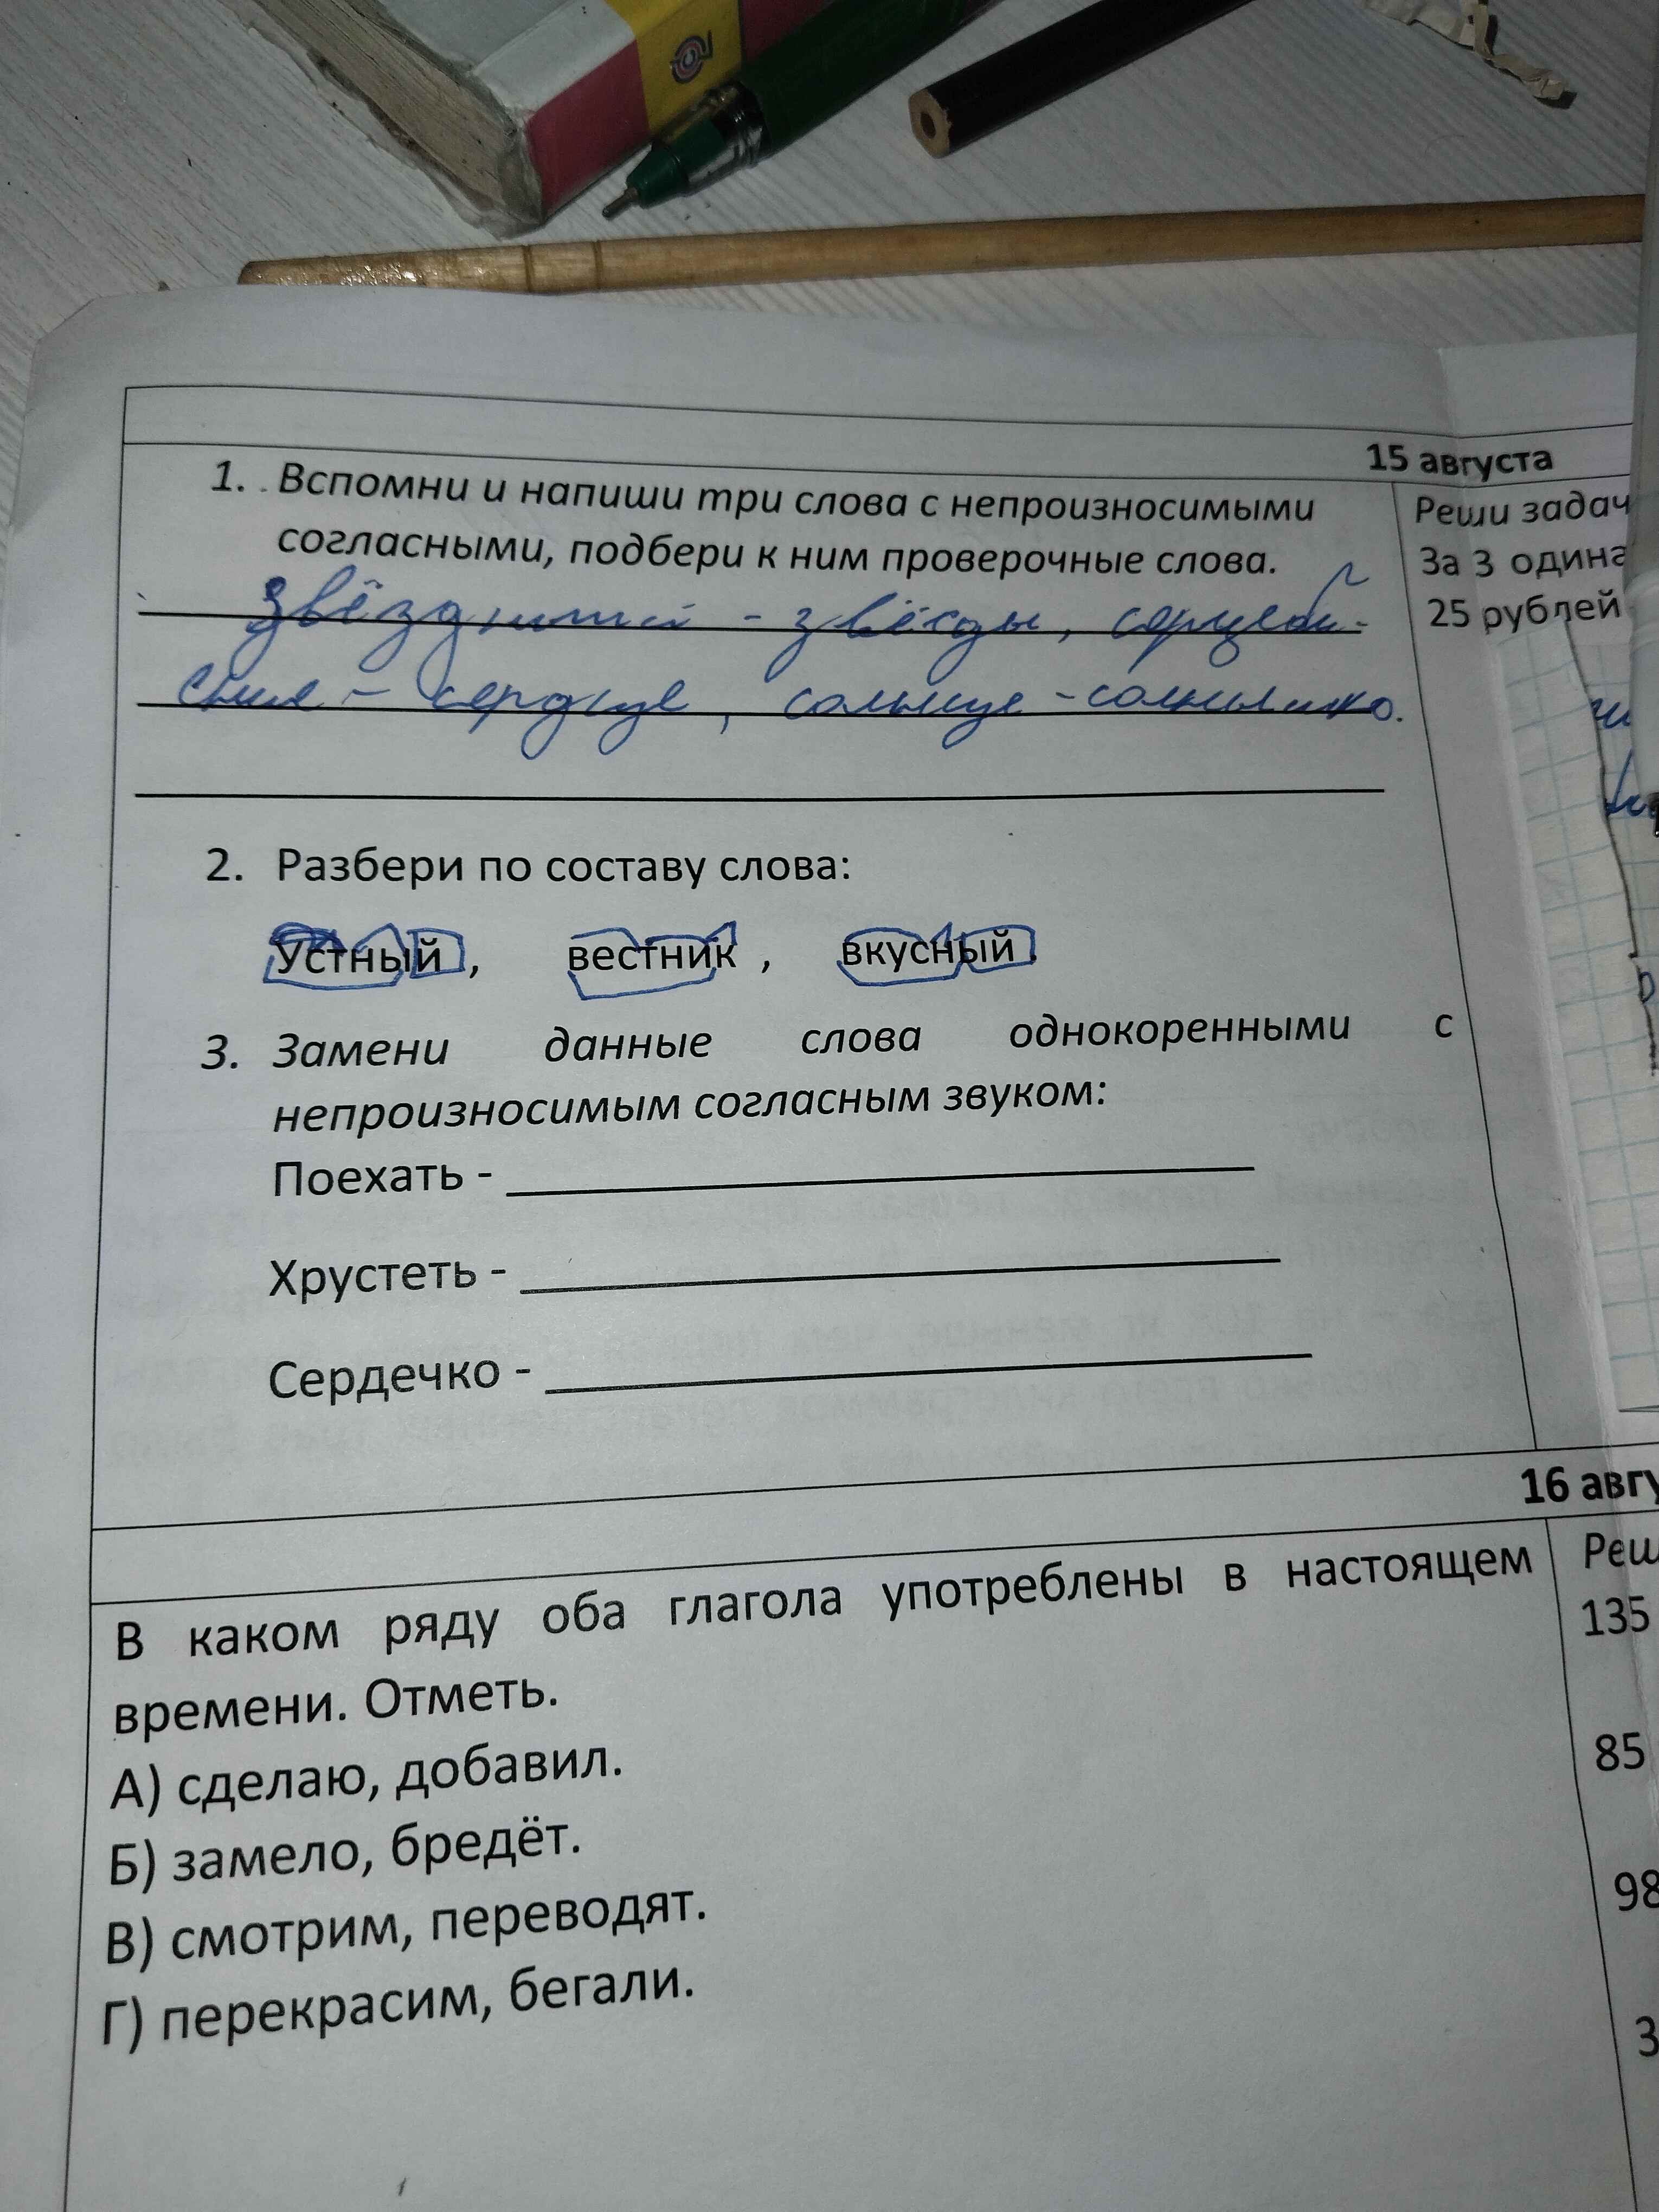 15 августа
1. Вспомни и напиши три слова с непроизносимыми
согласными, подбери к ним проверочные слова.
- звёзды,
- сердце, солнце - солнышко.
2. Разбери по составу слова:
Устный, вестник, вкусный.
3. Замени данные слова однокоренными с
непроизносимым согласным звуком:
Поехать -
Хрустеть -
Сердечко -
Реши задач
За 3 одина
25 рублей
16 авгу
В каком ряду оба глагола употреблены в настоящем
времени. Отметь.
А) сделаю, добавил.
Б) замело, бредёт.
В) смотрим, переводят.
Г) перекрасим, бегали.
Реш
135
85
98
3